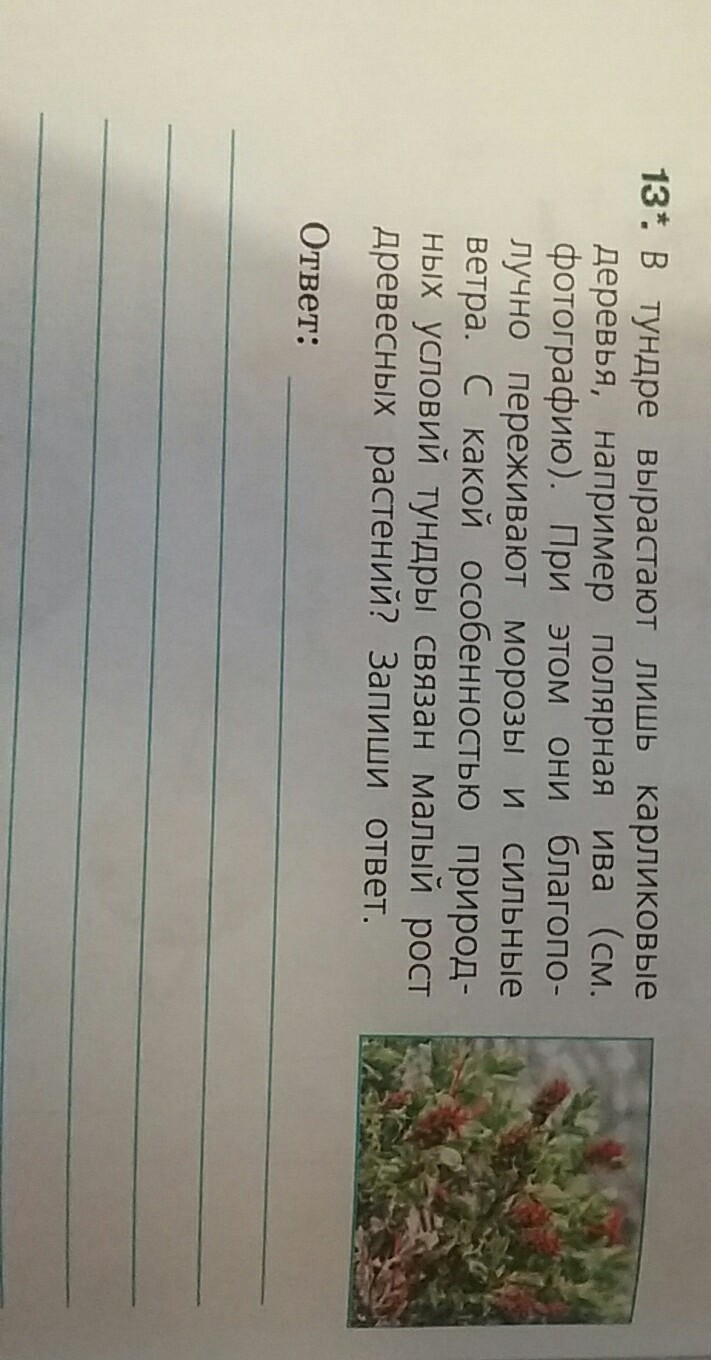 13*. В тундре вырастают лишь карликовые
деревья, например полярная ива (см.
фотографию). При этом они благопо-
лучно переживают морозы и сильные
ветра. С какой особенностью природ-
ных условий тундры связан малый рост
древесных растений? Запиши ответ.
Ответ: